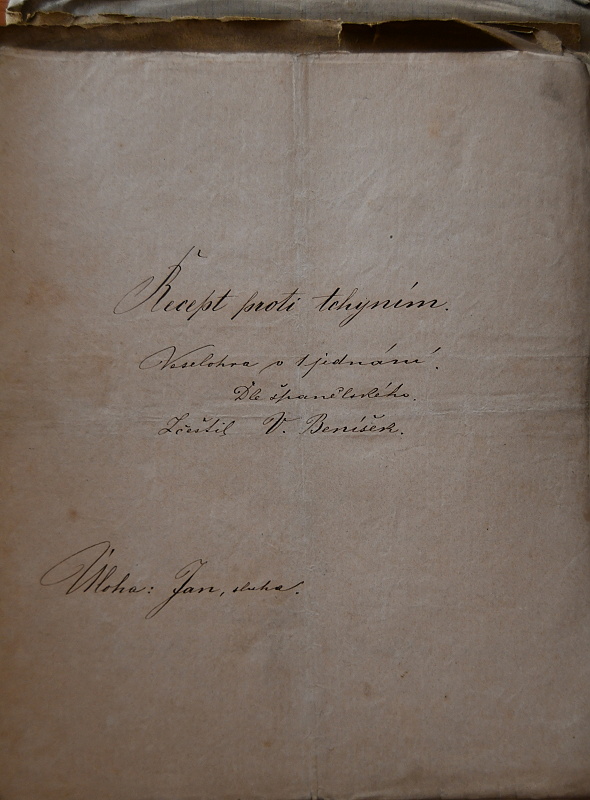 Recept proti tchyním.
Veselohra v 1 jednání.
Dle španělského.
Zčeštil V. Beníšek.
Úloha: Jan, sluha.